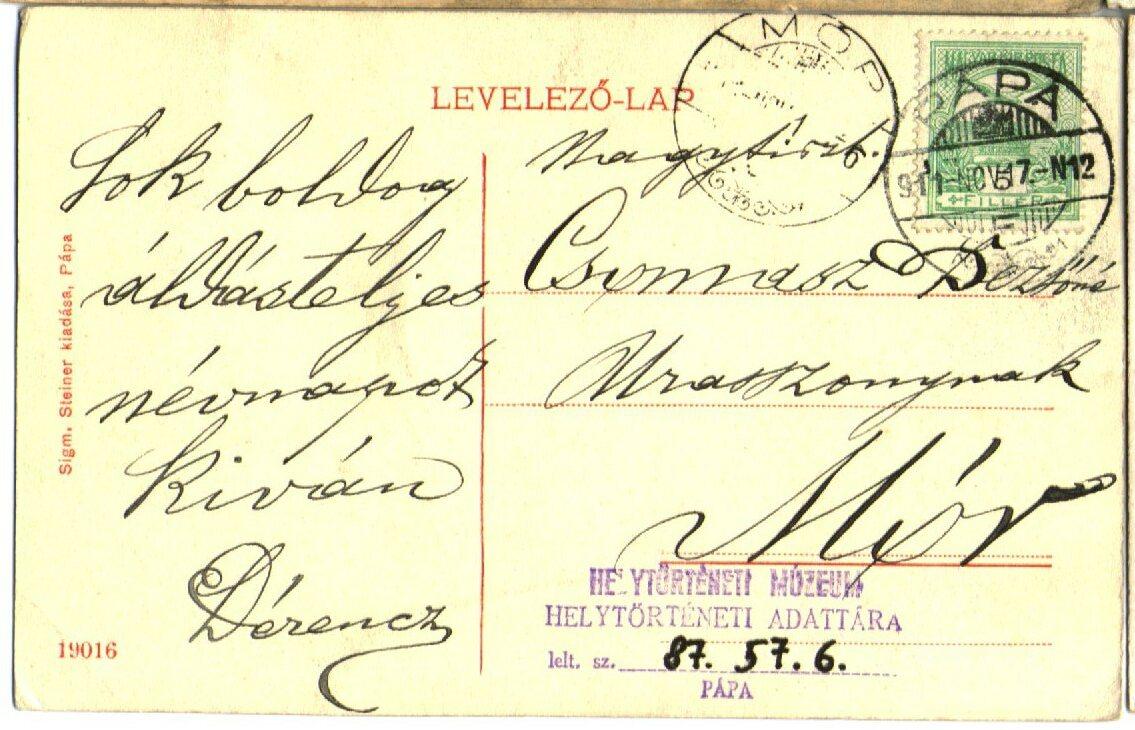 LEVELEZŐ-LAP
MÓR
MAGYAR KIR. POSTA
PÁPA
911 NOV 17.-N12
FILLÉR
Sok boldog
áldásteljes
névnapot
kiván
Dérencz
Nagyság.
Csonnasz Dezsőné
Urasszonynak
Mór
Sigm. Steiner kiadása, Pápa
19016
HELYTÖRTÉNETI MÚZEUM
HELYTÖRTÉNETI ADATTÁRA
lelt. sz. 87. 57. 6.
PÁPA